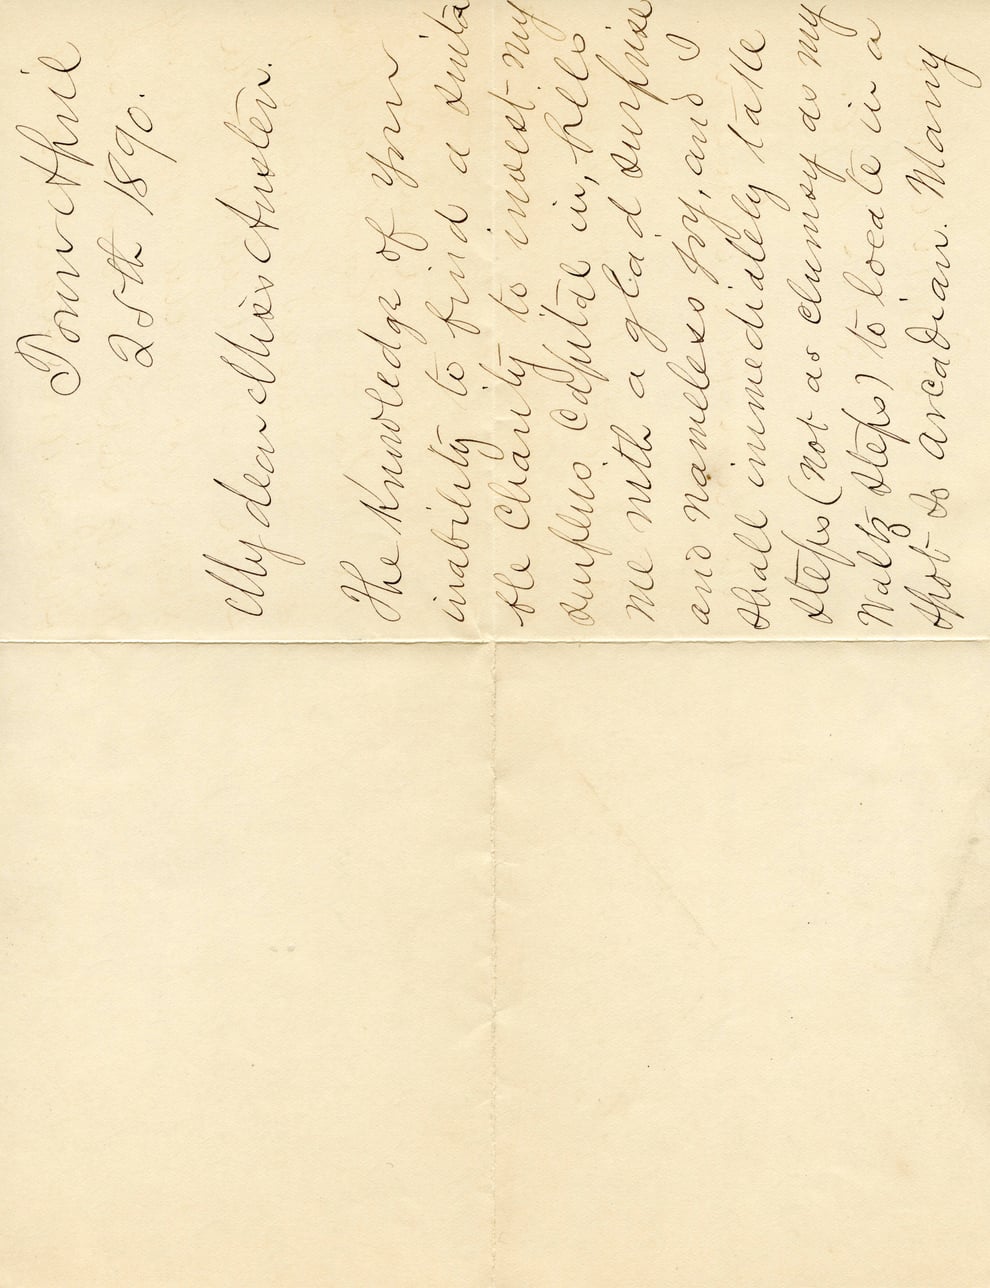 Town April
25th 1890.
My dear Miss Austen.
The knowledge of your
inability to find a suita
ble Charity to invest my
surplus Capital in, fills
me with a glad surprise
and nameless joy, and I
shall immediately take
steps (not as clumsy as my
Waltz steps) to locate in a
spot so arcadian. Many